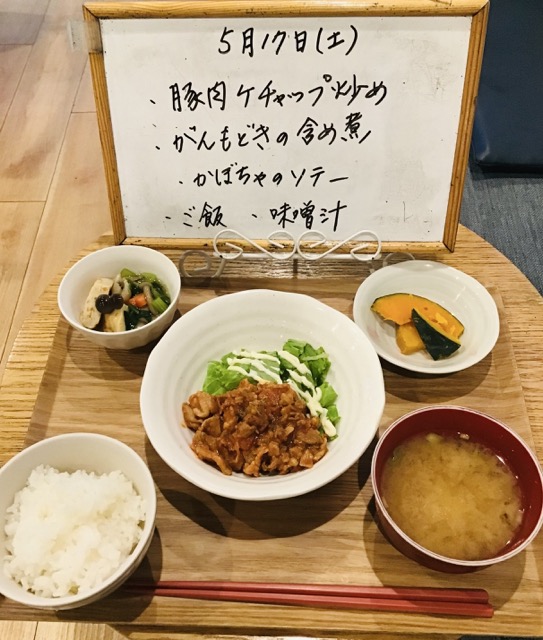 5月17日(土)
・豚肉ケチャップ炒め
・がんもどきの含め煮
・かぼちゃのソテー
・ご飯 ・味噌汁